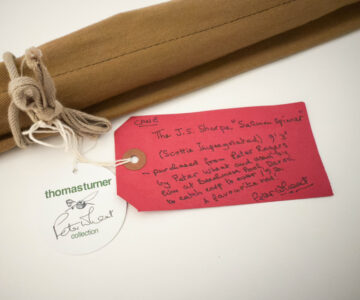 Cane
The J.S. Sharpe, "Salmon Spinner"
(Scottie Impregnated) 9½'
- purchased from Peter Rogers
by Peter Wheat and used by
him at
to catch carp to over
A favourite rod.
Peter Wheat
thomasturner
Peter Wheat
collection